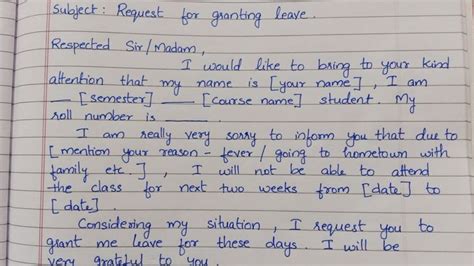 Subject: Request for granting leave.
Respected Sir/Madam,
I would like to bring to your kind
attention that my name is [your name], I am
__ [semester] __ [course name] student. My
roll number is ____.
I am really very sorry to inform you that due to
[mention your reason - fever / going to hometown with
family etc.], I will not be able to attend
the class for next two weeks from [date] to
[date].
Considering my situation, I request you to
grant me leave for these days. I will be
very grateful to you.